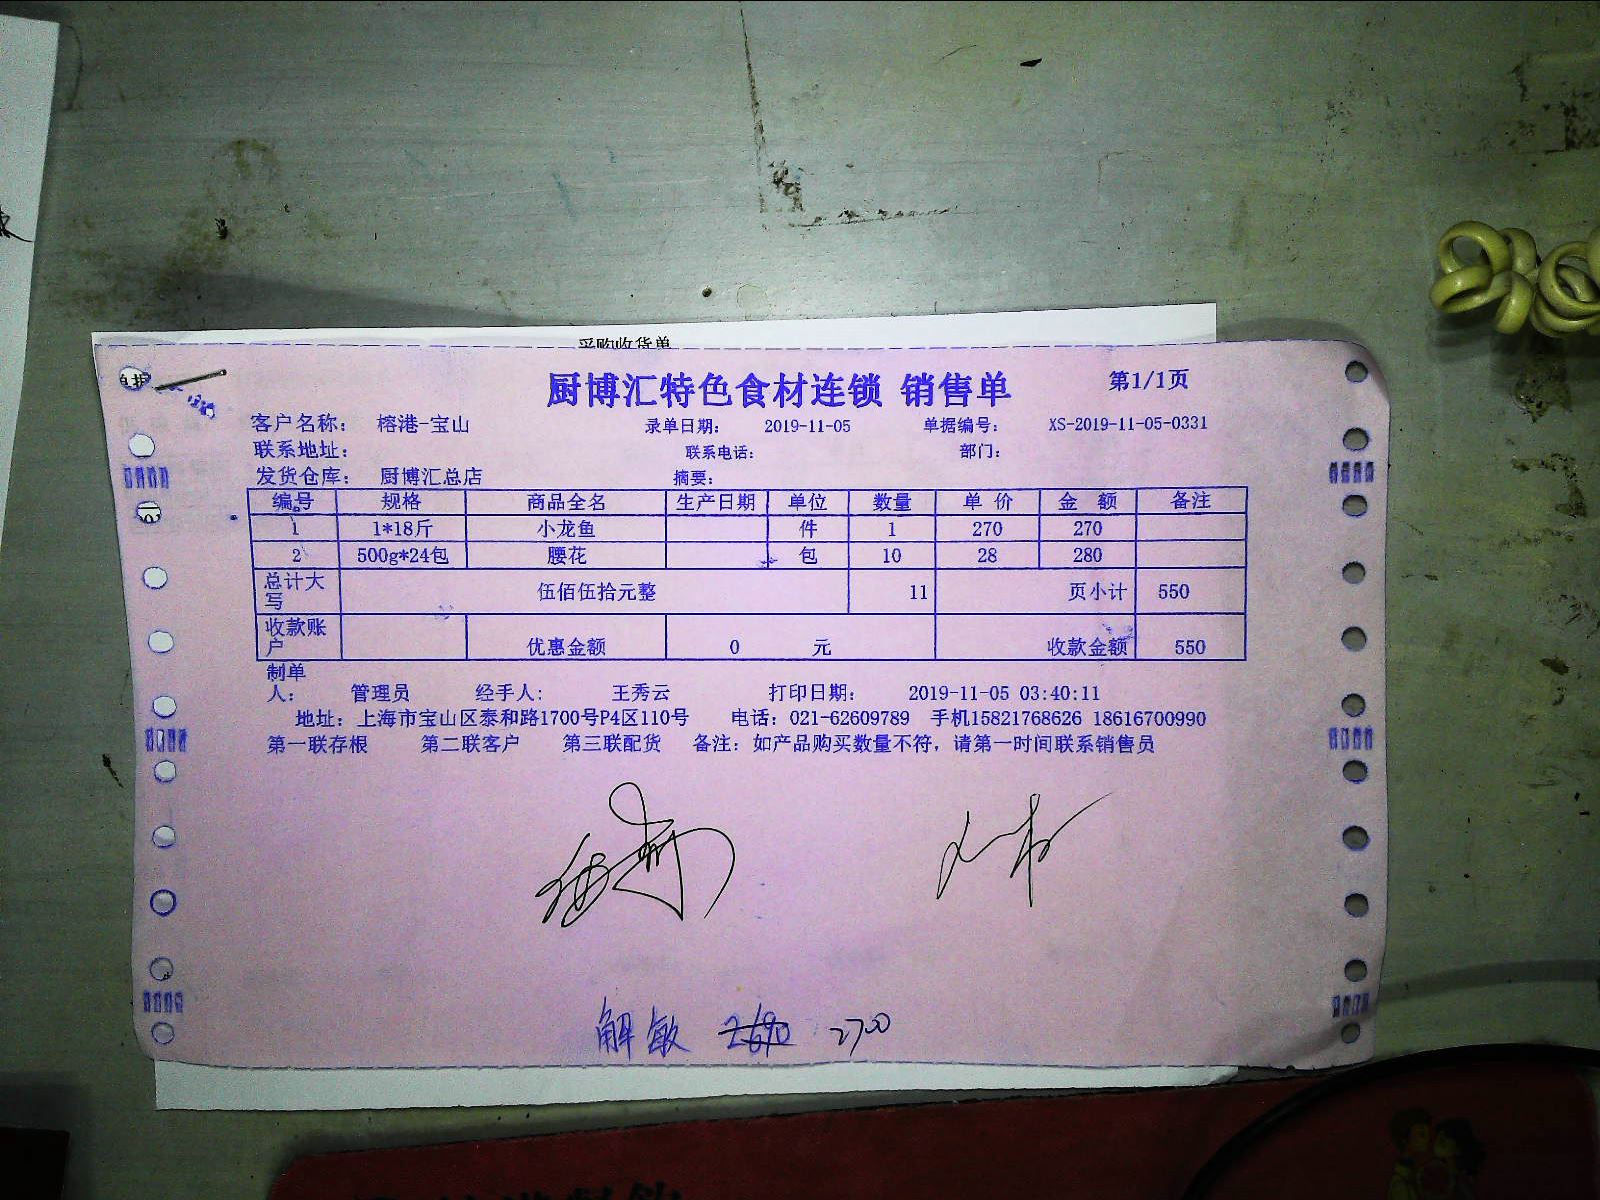 采购收货单
厨博汇特色食材连锁 销售单 第1/1页
客户名称： 榕港-宝山 录单日期： 2019-11-05 单据编号： XS-2019-11-05-0331
联系地址： 联系电话： 部门：
发货仓库： 厨博汇总店 摘要：
编号 规格 商品全名 生产日期 单位 数量 单 价 金 额 备注
1 1*18斤 小龙鱼 件 1 270 270
2 500g*24包 腰花 包 10 28 280
总计大写 伍佰伍拾元整 11 页小计 550
收款账户 优惠金额 0 元 收款金额 550
制单人： 管理员 经手人： 王秀云 打印日期： 2019-11-05 03:40:11
地址：上海市宝山区泰和路1700号P4区110号 电话：021-62609789 手机15821768626 18616700990
第一联存根 第二联客户 第三联配货 备注：如产品购买数量不符，请第一时间联系销售员
解敏 2690 2700